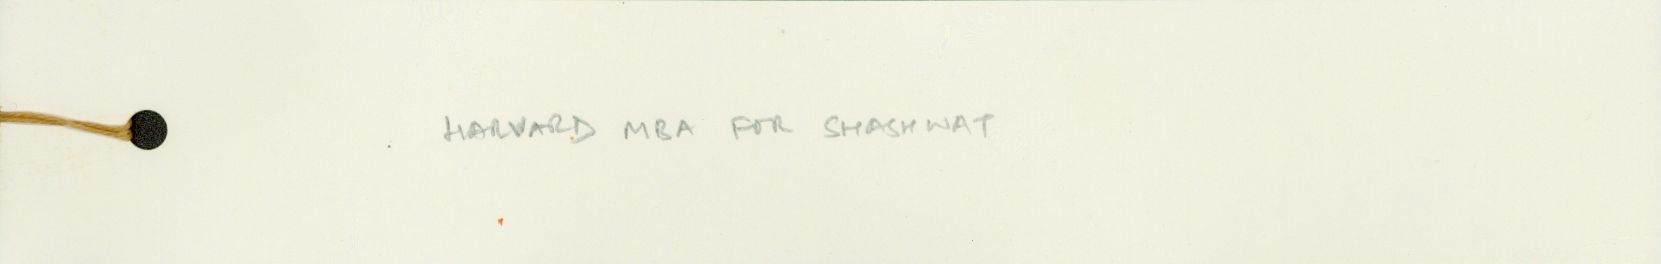 HARVARD MBA FOR SHASHWAT